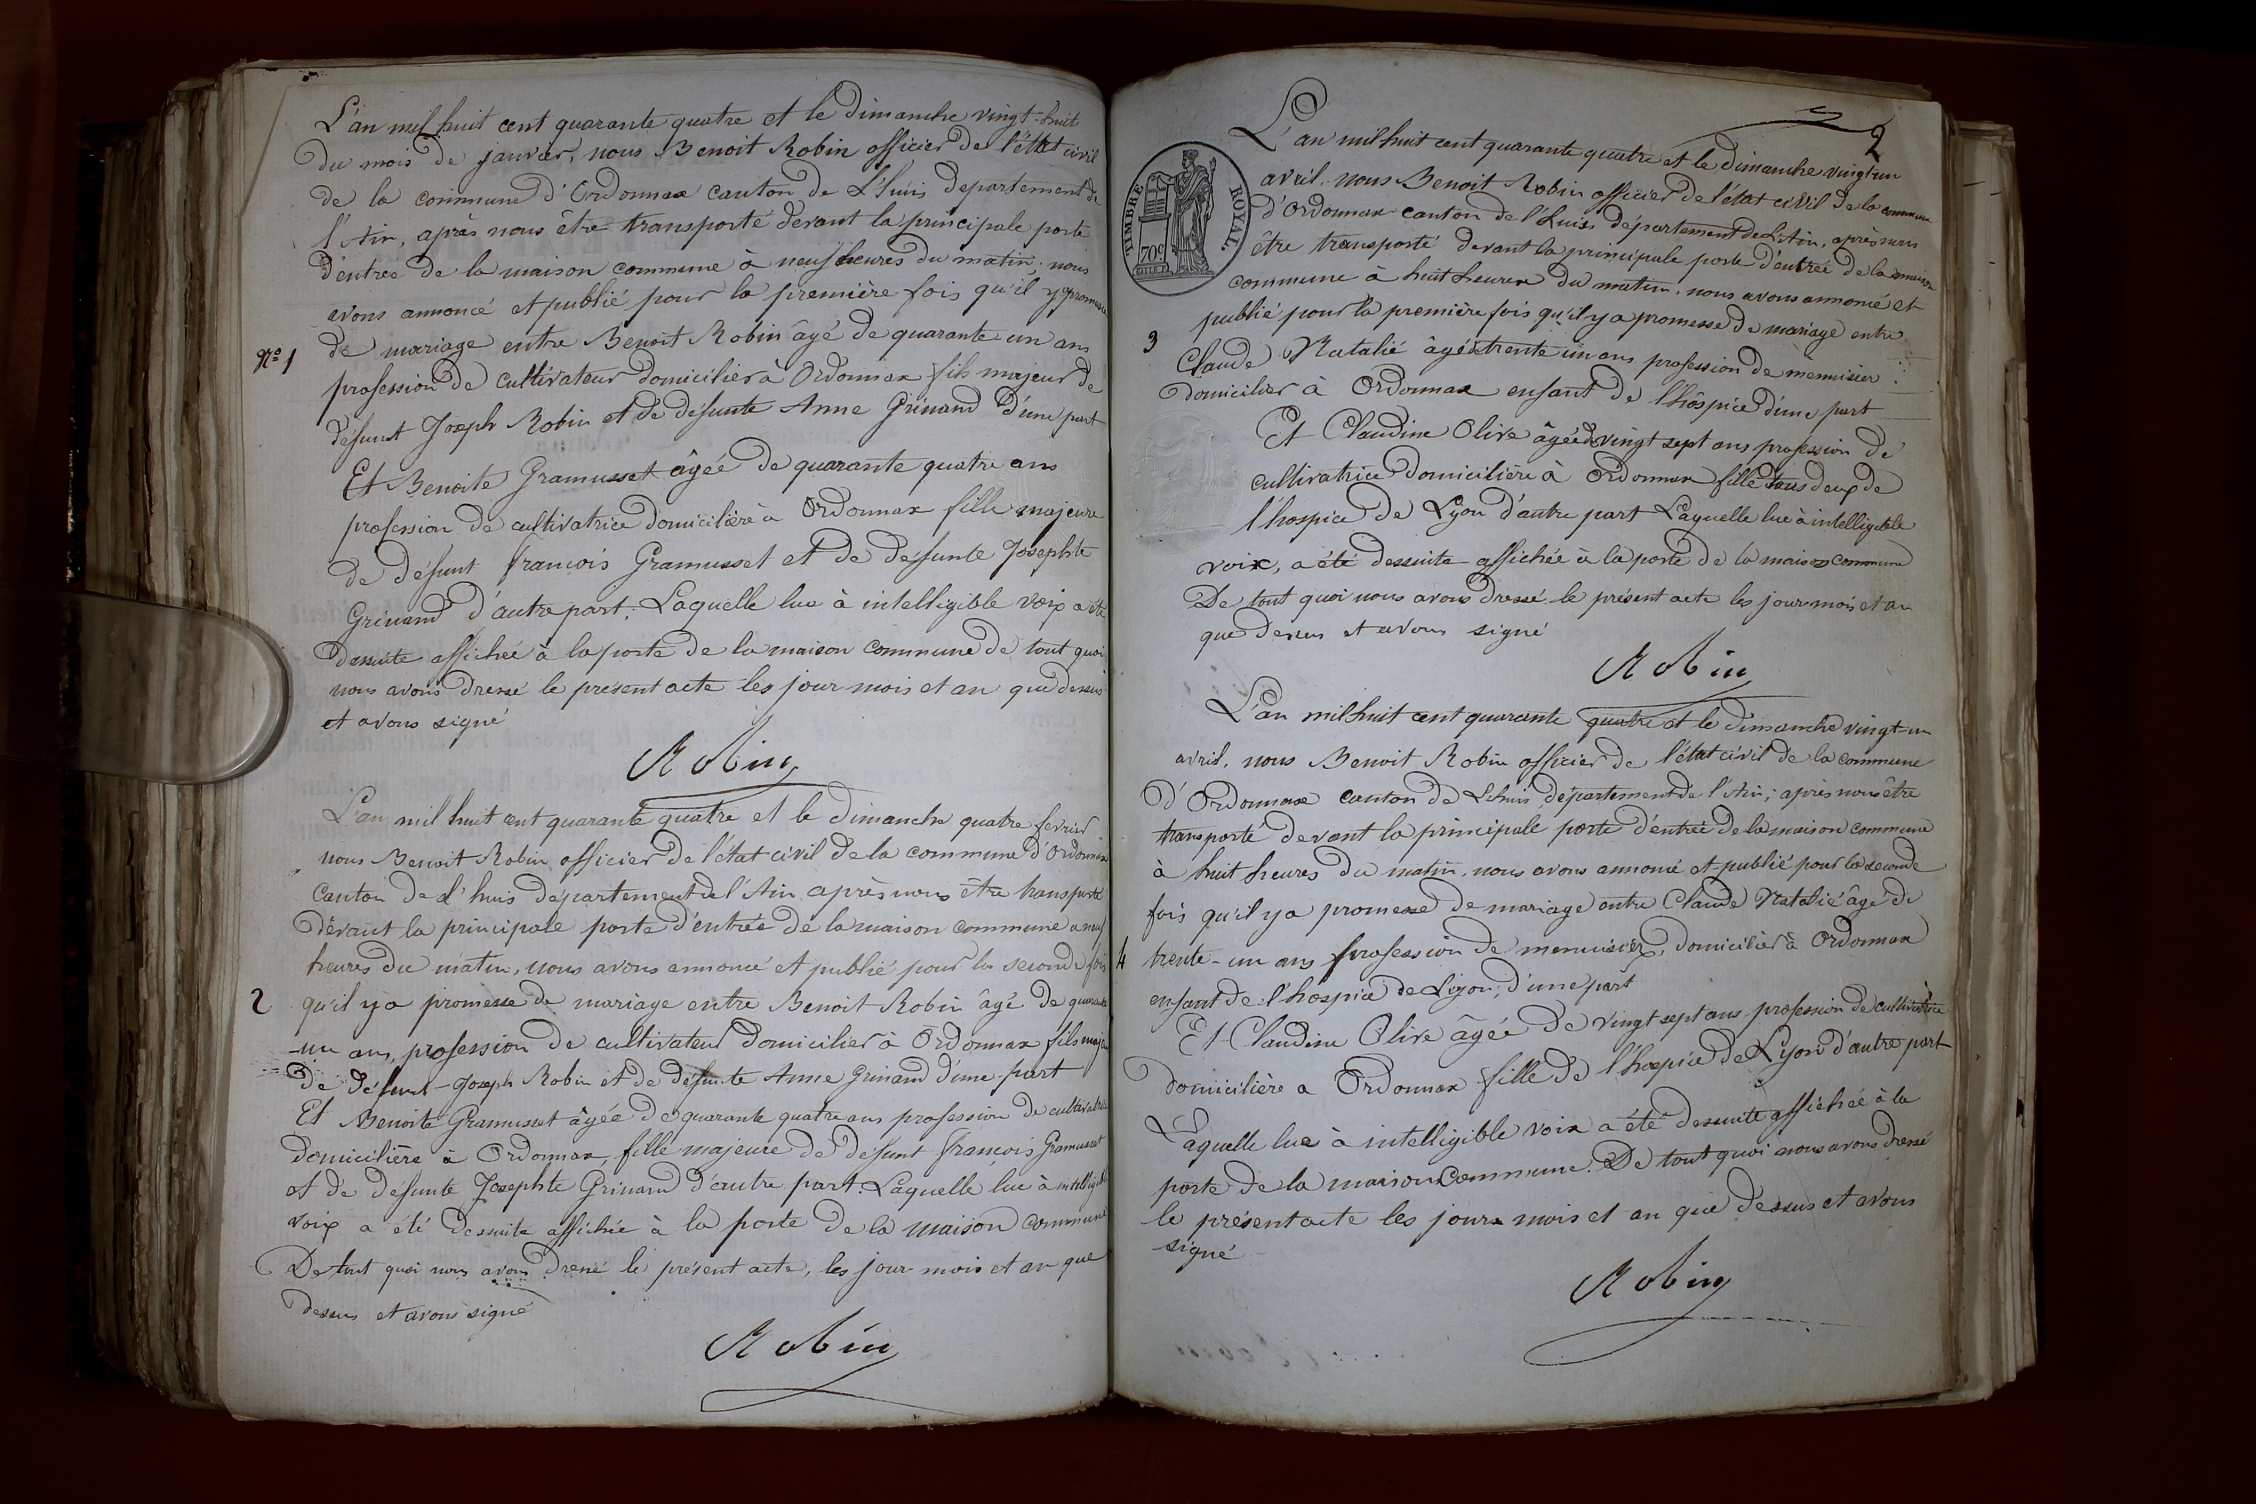 L'an mil huit cent quarante quatre et le dimanche vingt-huit
du mois de janvier, nous Benoit Robin officier de l'état civil
de la commune d'Ordonnax canton de L'huis departement de
l'Ain, après nous être transporté devant la principale porte
d'entrée de la maison commune à neuf heures du matin, nous
avons annoncé et publié pour la première fois qu'il y a promesse
de mariage entre Benoit Robin âgé de quarante un ans
Nº 1
profession de cultivateur domicilier à Ordonnax fils majeur de
défunt Joseph Robin et de défunte Anne Grinand d'une part
Et Benoite Gramusset âgée de quarante quatre ans
profession de cultivatrice domicilière à Ordonnax fille majeure
de défunt françois Gramusset et de défunte Josephte
Grinand d'autre part. Laquelle lue à intelligible voix a été
dessuite affichée à la porte de la maison commune de tout quoi
nous avons dressé le présent acte les jour mois et an que dessus
et avons signé
Robin
L'an mil huit cent quarante quatre et le dimanche quatre fevrier
nous Benoit Robin officier de l'état civil de la commune d'Ordonnax
canton de L'huis département de l'Ain après nous être transporté
dévant la principale porte d'entrée de la maison commune a neuf
heures du matin, nous avons annoncé et publié pour la seconde fois
2 qu'il y a promesse de mariage entre Benoit Robin âgé de quarante
-un ans, profession de cultivateur domicilier à Ordonnax fils majeur
de défunt Joseph Robin et de defunte Anne Grinand d'une part
Et Benoite Gramusset âgée de quarante quatre ans profession de cultivatrice
domicilière à Ordonnax, fille majeure de defunt françois Gramusset
et de défunte Josephte Grinand d'autre part. Laquelle lue à intelligible
voix a été dessuite affichée à la porte de la maison commune
De tout quoi nous avons dressé le présent acte, les jour mois et an que
dessus et avons signé
Robin
2
L'an mil huit cent quarante quatre et le dimanche vingt-un
avril. nous Benoit Robin officier de l'état civil de la commune
d'Ordonnax canton de l'huis département de L'Ain, après nous
être transporté devant la principale porte d'entrée de la maison
commune à huit heures du matin, nous avons annoncé et
publié pour la première fois qu'il y a promesse de mariage entre
3
Claude Natalié âgé de trente un ans profession de menuisier
domicilier à Ordonnax enfant de l'hôspice d'une part
Et Claudine Olive âgée de vingt sept ans profession de
cultivatrice domicilière à Ordonnax fille tous deux de
l'hospice de Lyon d'autre part Laquelle lue à intelligible
voix, a été dessuite affichée à la porte de la maison commune
De tout quoi nous avons dressé le présent acte les jour mois et an
que dessus et avons signé
Robin
L'an mil huit cent quarante quatre et le dimanche vingt-un
avril, nous Benoit Robin officier de l'état civil de la commune
d'Ordonnax canton de Lhuis, département de l'Ain, après nous être
transporté devant la principale porte d'entrée de la maison commune
à huit heures du matin, nous avons annoncé et publié pour la seconde
fois qu'il y a promesse de mariage entre Claude Natalié âgé de
4 trente-un ans profession de menuisier, domicilier à Ordonnax
enfant de l'hospice de Lyon, d'une part
Et Claudine Olive âgée de vingt sept ans profession de cultivatrice
domicilière a Ordonnax fille de l'hospice de Lyon d'autre part
Laquelle lue à intelligible voix a été dessuite affichée à la
porte de la maison Commune. De tout quoi nous avons dressé
le présent acte les jours mois et an que dessus et avons
signé
Robin
TIMBRE ROYAL
70c